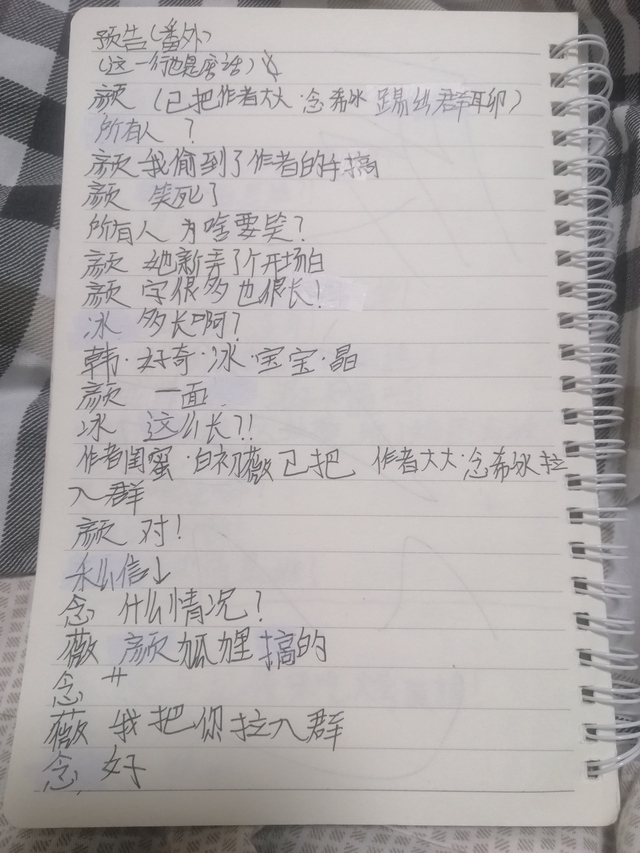 预告(番外)
(这一行也是废话)
颜 (已把作者大大·念希冰踢出群聊)
所有人 ?
颜 我偷到了作者的手搞
颜 笑死了
所有人 为啥要笑?
颜 她新弄了个开场白
颜 字很多也很长!
冰 多长啊?
韩·好奇·冰·宝宝·晶
颜 一面
冰 这么长?!
作者闺蜜·白初薇已把 作者大大·念希冰拉
入群
颜 对!
私信↓
念 什么情况?
薇 颜狐狸搞的
念 艹
薇 我把你拉入群
念 好